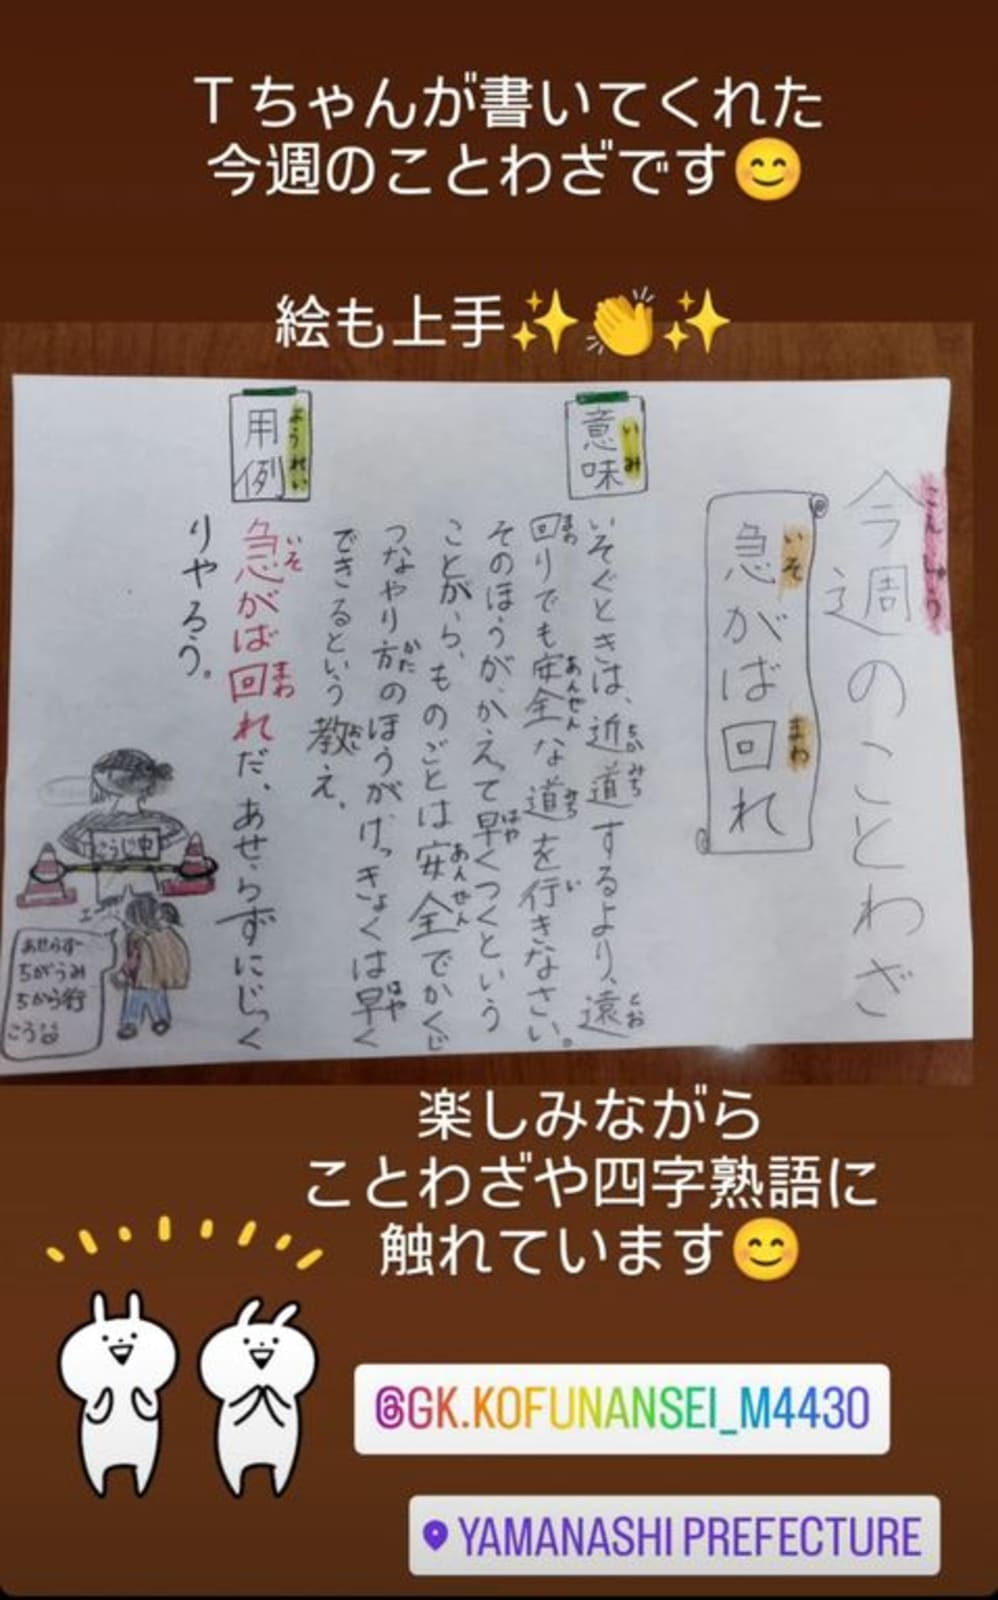 Tちゃんが書いてくれた
今週のことわざです😊
絵も上手✨👏✨
今週のことわざ
こんしゅう
急がば回れ
いそ
まわ
意味
いみ
いそぐときは、近道するより、遠
ちかみち
とお
回りでも安全な道を行きなさい。
まわ
あんぜん
みち
い
そのほうが、かえって早くつくという
はや
ことから、ものごとは安全でかくじ
あんぜん
つなやり方のほうが、けっきょくは早く
かた
はや
できるという教え。
おし
用例
ようれい
急がば回れだ、あせらずにじっく
いそ
まわ
りやろう。
こうじ中
あせらず
ちがうみ
ちから行
こう
楽しみながら
ことわざや四字熟語に
触れています😊
@GK.KOFUNANSEI_M4430
YAMANASHI PREFECTURE